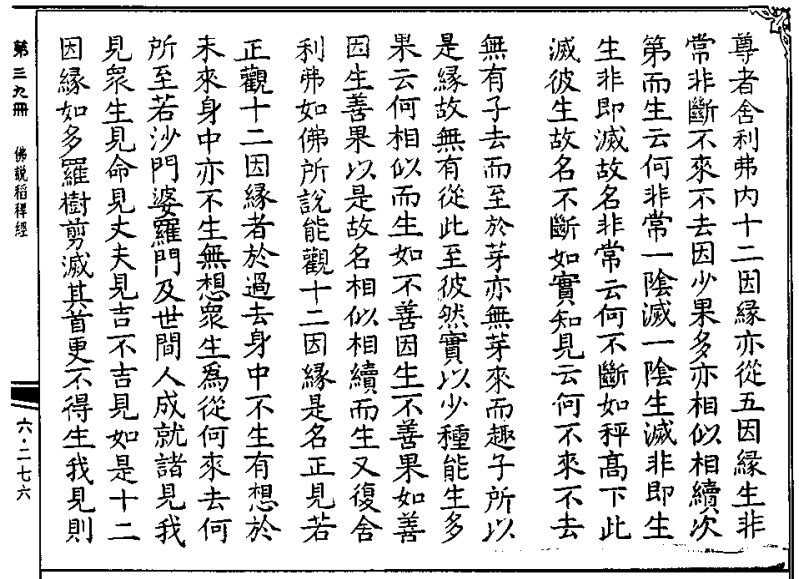 尊者舍利弗内十二因緣亦從五因緣生非
常非斷不來不去因少果多亦相似相續次
第而生云何非常一陰滅一陰生滅非即生
生非即滅故名非常云何不斷如秤高下此
滅彼生故名不斷如實知見云何不來不去
無有子去而至於芽亦無芽來而趣子所以
是緣故無有從此至彼然實以少種能生多
果云何相似而生如不善因生不善果如善
因生善果以是故名相似相續而生又復舍
利弗如佛所說能觀十二因緣是名正見若
正觀十二因緣者於過去身中不生有想於
未來身中亦不生無想眾生為從何來去何
所至若沙門婆羅門及世間人成就諸見我
見眾生見命見丈夫見吉不吉見如是十二
因緣如多羅樹剪滅其首更不得生我見則
第三九冊　佛說稻稈經
六·二七六